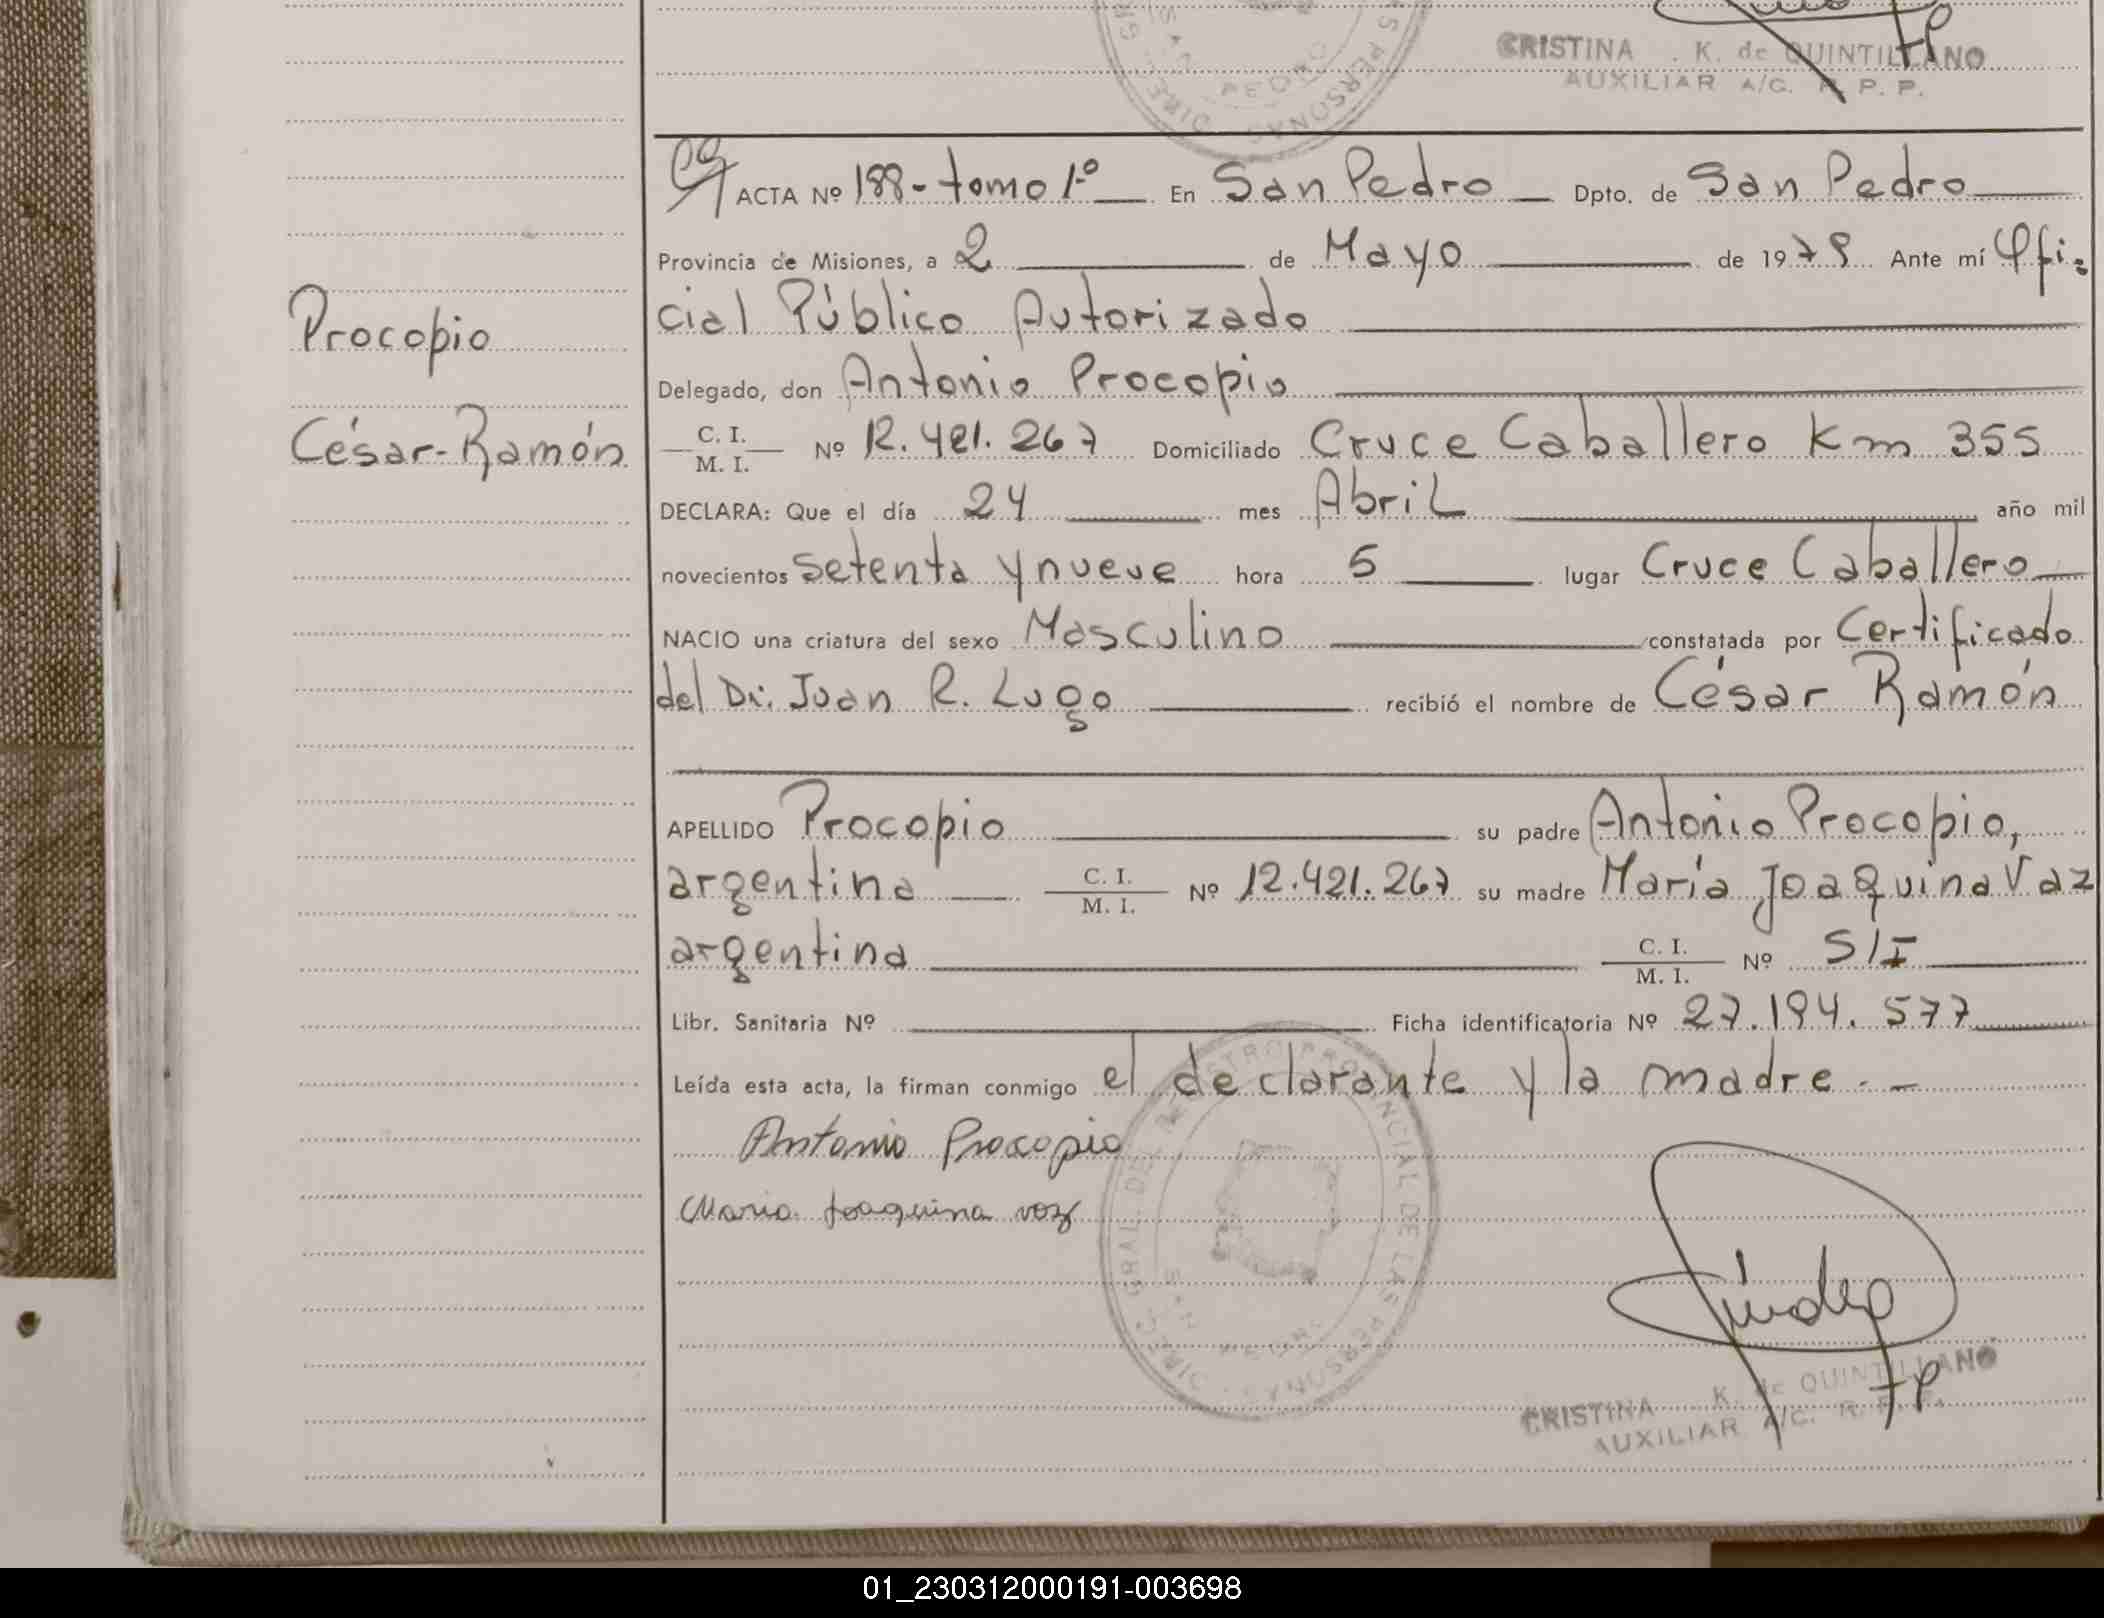 CRISTINA K. de QUINTILLANO
AUXILIAR A/C. R. P. P.
SAN PEDRO
ACTA Nº 188 - tomo 1º En San Pedro Dpto. de San Pedro
Provincia de Misiones, a 2 de Mayo de 1979 Ante mí Ofi-
cial Público Autorizado
Procopio
Delegado, don Antonio Procopio
César-Ramón
C. I. / M. I. Nº 12.421.267 Domiciliado Cruce Caballero Km 355
DECLARA: Que el día 24 mes Abril año mil
novecientos setenta y nueve hora 5 lugar Cruce Caballero
NACIO una criatura del sexo Masculino constatada por Certificado
del Dr. Juan R. Lugo recibió el nombre de César Ramón
APELLIDO Procopio su padre Antonio Procopio,
argentina C. I. / M. I. Nº 12.421.267 su madre María Joaquina Vaz
argentina C. I. / M. I. Nº S/I
Libr. Sanitaria Nº Ficha identificatoria Nº 27.194.577
Leída esta acta, la firman conmigo el declarante y la madre. -
Antonio Procopio
Maria Joaquina voz
DIREC. GRAL. DEL REGISTRO PROVINCIAL DE LAS PERSONAS
SAN PEDRO
CRISTINA K. de QUINTILLANO
AUXILIAR A/C. R. P. P.
01_230312000191-003698